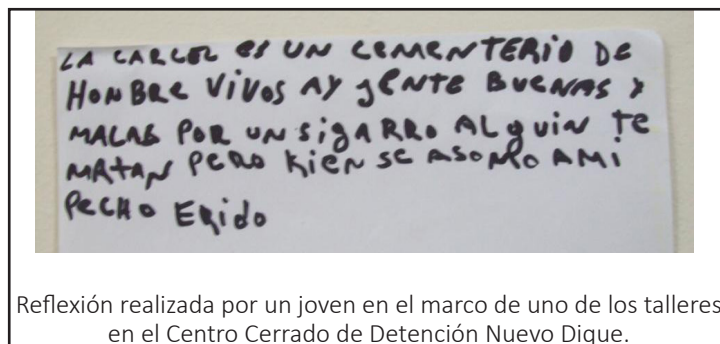 LA CARCEL ES UN CEMENTERIO DE
HONBRE VIVOS AY GENTE BUENAS Y
MALAS POR UN SIGARRO ALGUIN TE
MATAN PERO KIEN SE ASOMO AMI
PECHO ERIDO
Reflexión realizada por un joven en el marco de uno de los talleres
en el Centro Cerrado de Detención Nuevo Dique.